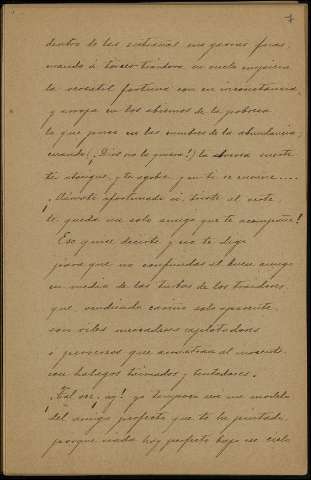 7
dentro de las entrañas sus garras fieras,
cuando á torcer traidora su vuelo empieza
la versátil fortuna con su inconstancia,
y arroja en los abismos de la pobreza
lo que puso en las cumbres de la abundancia;
cuando (¡Dios no lo quiera!) la suerte
te ahogue, y te agobie y en ti se ensañe....
¡Llámate afortunado si hasta el
te queda un solo amigo que te acompañe!
Eso quise decirte y eso te digo
para que no confundas al buen amigo
en medio de las turbas de los traidores
que, vendiendo cariño solo aparente,
son viles mercaderes explotadores
ó perversos que acarician al inocente
con halagos y tentadores.
¡Tal vez, ay! yo tampoco sea un modelo
del amigo perfecto que te he pintado,
porque nada hay perfecto bajo ese cielo